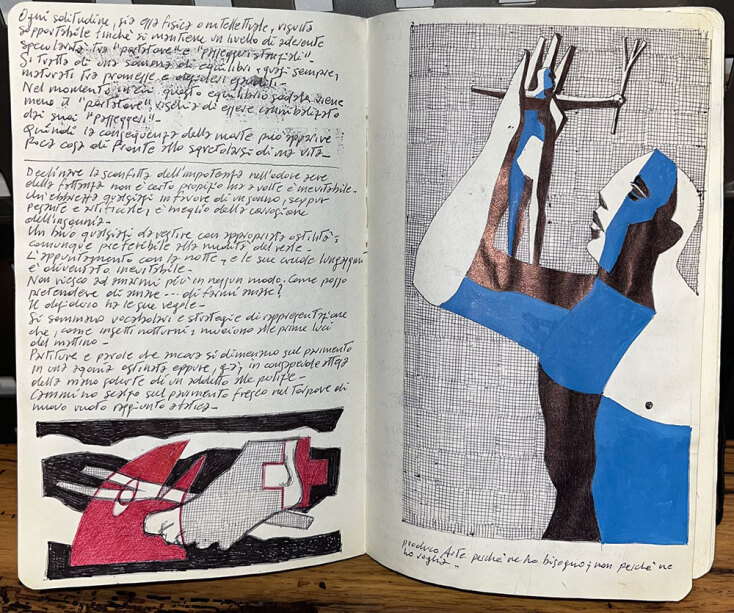 Ogni solitudine, sia essa fisica o intellettuale, risulta
sopportabile finché si mantiene un livello di aderente
specularità tra "portatore" e "passeggeri
Si tratta di una somma di equilibri, quasi sempre,
maturati tra promesse e desideri
Nel momento in cui questo equilibrio sodale viene
meno il "portatore" rischia di essere cannibalizzato
dai suoi "passeggeri".
Quindi la conseguenza della morte può apparire
Poca cosa di fronte allo sgretolarsi di una vita.
Declinare la sconfitta dell'impotenza nell'odore acre
della non è certo propizio ma a volte è inevitabile.
Un'ebbrezza qualsiasi in favore di un sonno, seppur
pesante e artificiale, è meglio della corrosione
dell'insonnia.
Un buio qualsiasi da vestire con appropriata ostilità,
comunque preferibile alla nudità del reale.
L'appuntamento con la notte, e le sue crude
è diventato inevitabile.
Non riesco ad amarmi più in nessun modo. Come posso
pretendere di amare -- di farmi amare?
Il degrado ha le sue regole.
Si sommano vocabolari e strategie di rappresentazione
che, come insetti notturni, muoiono alle prime luci
del mattino.
Partiture e parole che ancora si dimenano sul pavimento
in una agonia ostinata oppure, già, in consapevole attesa
della mano solerte di un addetto alle pulizie.
Cammino scalzo sul pavimento fresco nel torpore di
nuovo vuoto
produco Arte perché ne ho bisogno; non perché ne
ho voglia.